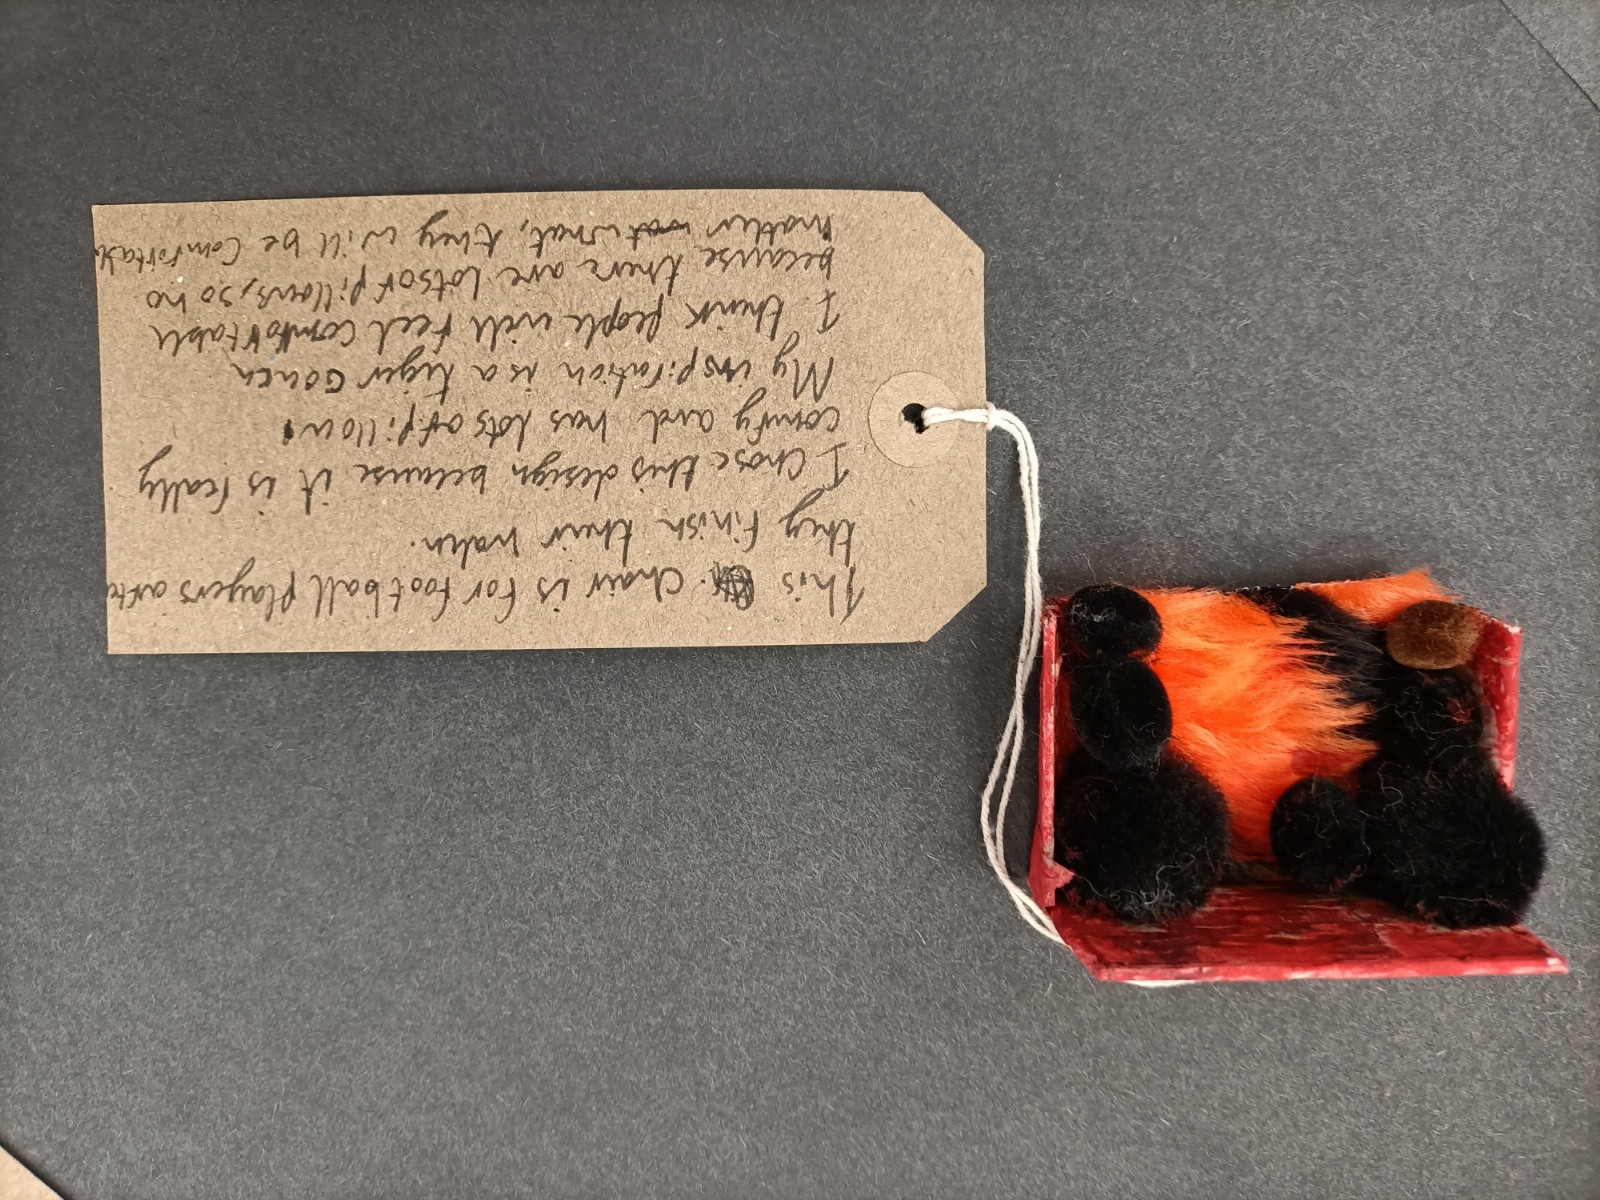 This chair is for football players after
they finish their match.
I chose this design because it is really
comfy and has lots of pillows
My inspiration is a tiger couch
I think people will feel comfortable
because there are lots of pillows, so no
matter what, they will be comfortable